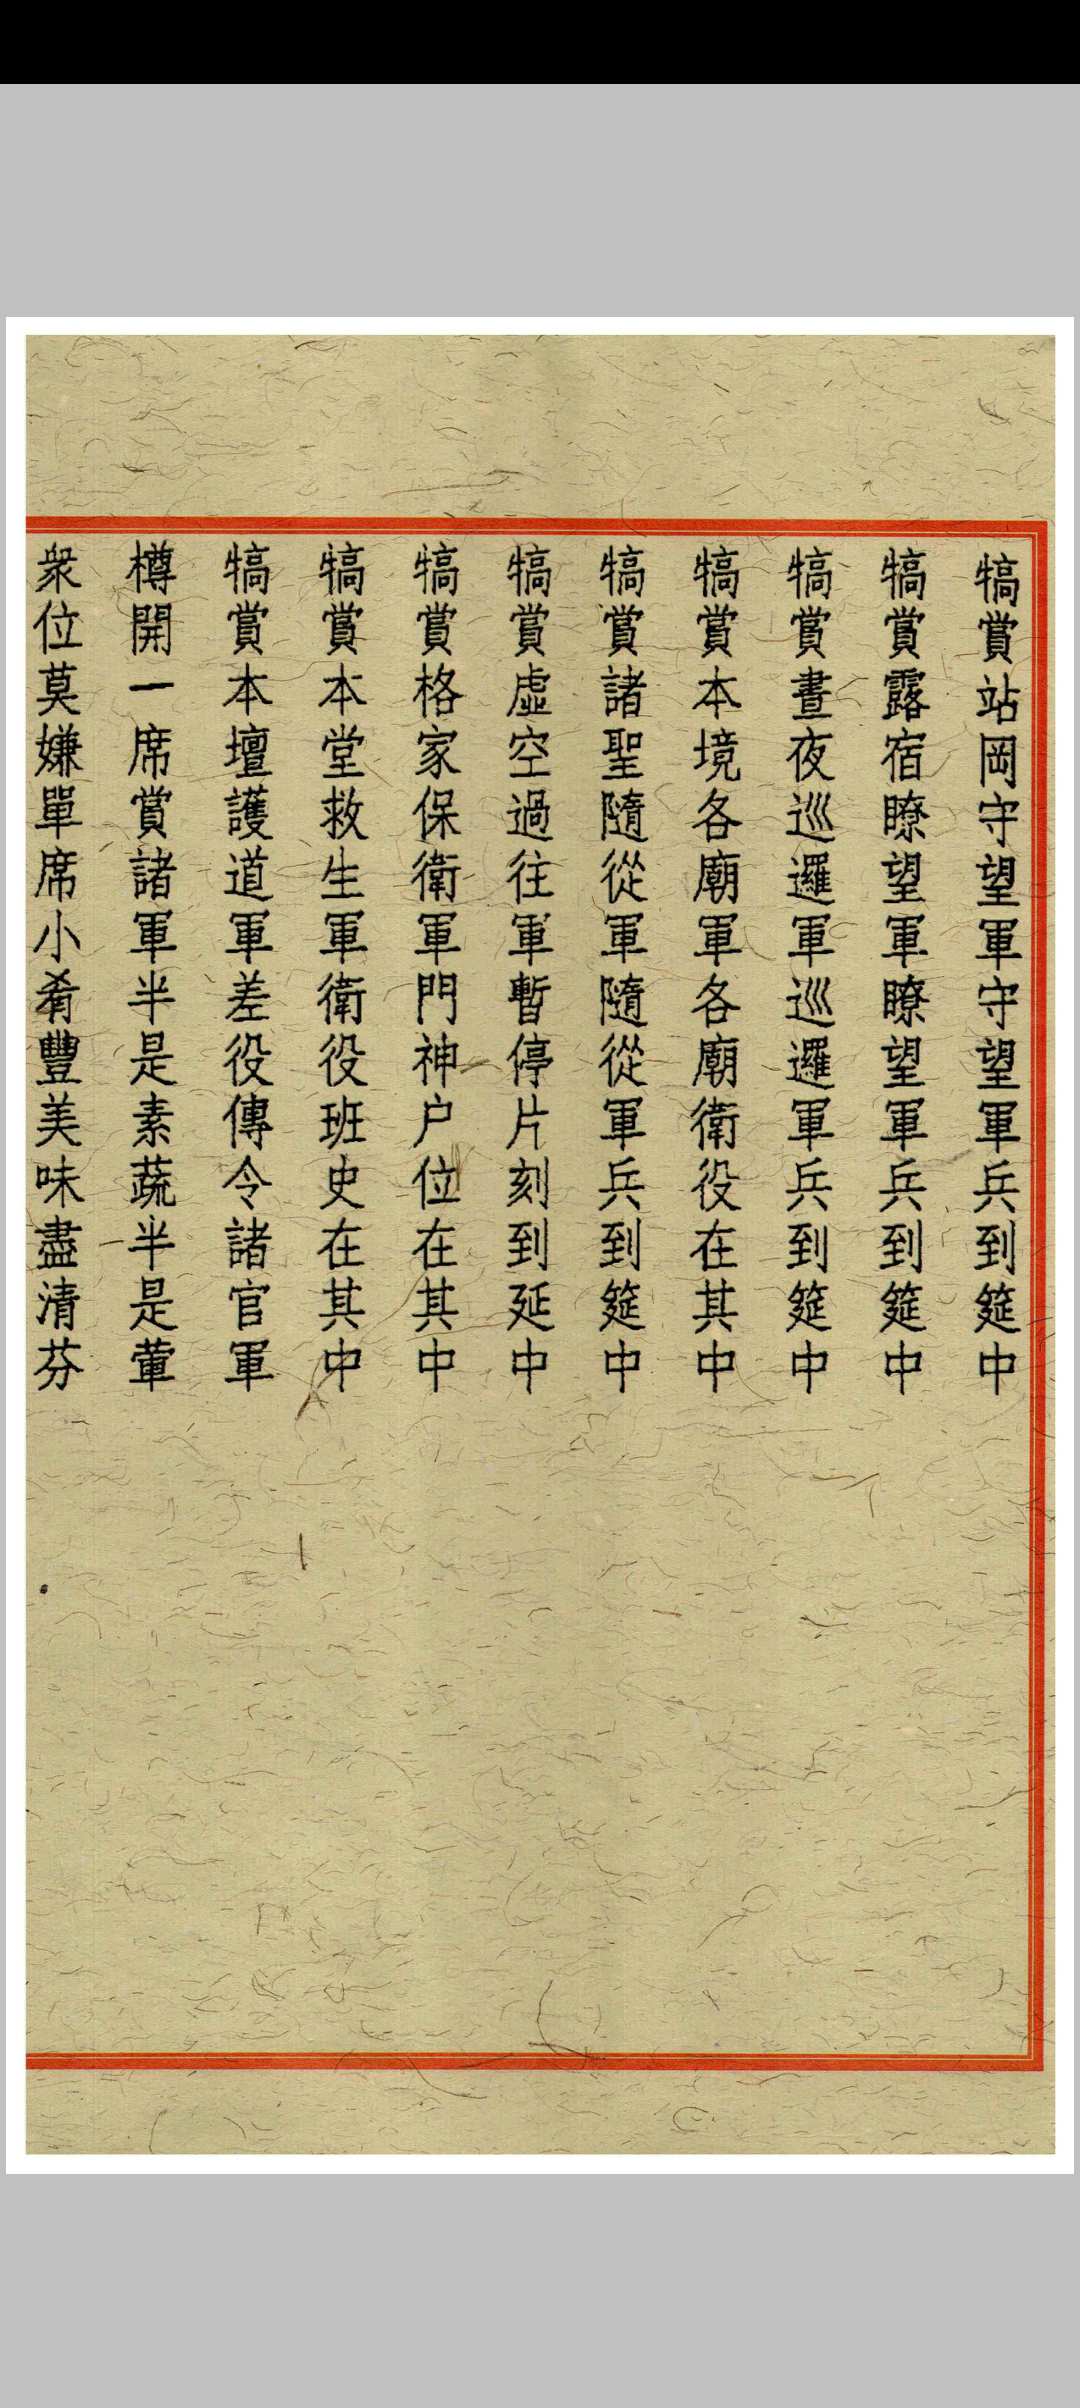 犒賞站岡守望軍守望軍兵到筵中
犒賞露宿瞭望軍瞭望軍兵到筵中
犒賞晝夜巡邏軍巡邏軍兵到筵中
犒賞本境各廟軍各廟衛役在其中
犒賞諸聖隨從軍隨從軍兵到筵中
犒賞虛空過往軍暫停片刻到延中
犒賞格家保衛軍門神户位在其中
犒賞本堂救生軍衛役班史在其中
犒賞本壇護道軍差役傳令諸官軍
樽開一席賞諸軍半是素蔬半是葷
衆位莫嫌單席小肴豐美味盡清芬